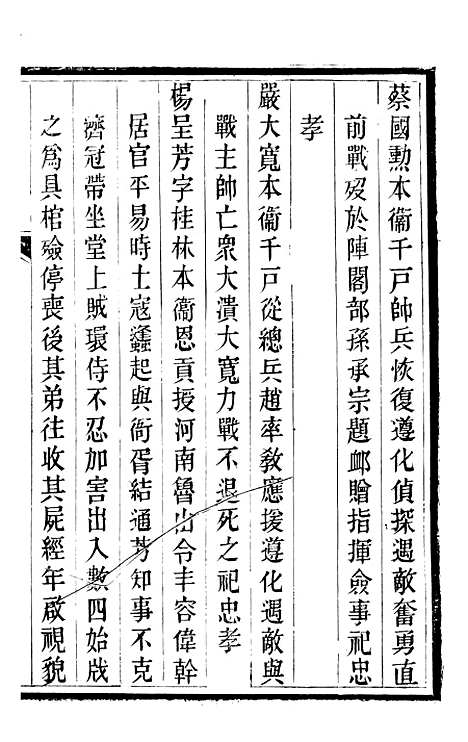 蔡國勲本衞千戸帥兵恢復遵化偵探遇敵奮勇直
前戰歿於陣閣部孫承宗題䘏贈指揮僉事祀忠
孝
嚴大寬本衞千戸從總兵趙率敎應援遵化遇敵與
戰主帥亡衆大潰大寬力戰不退死之祀忠孝
楊呈芳字桂林本衞恩貢授河南魯山令丰容偉幹
居官平易時土寇蠭起與衙胥結通芳知事不克
濟冠帶坐堂上賊環侍不忍加害出入數四始戕
之爲具棺殮停喪後其弟往收其屍經年啟視貌